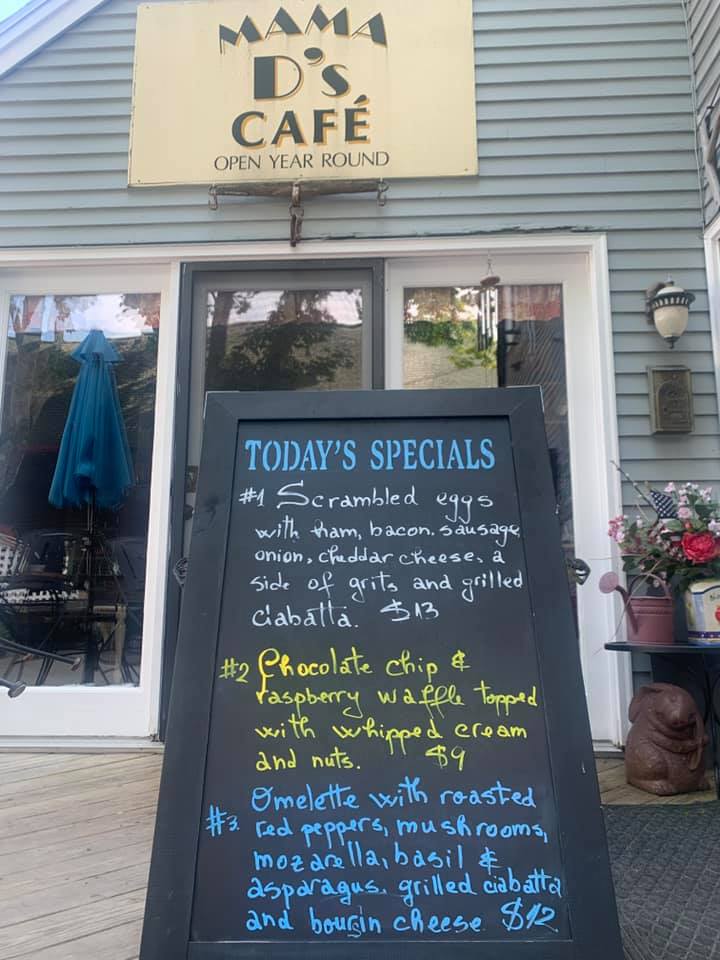 MAMA
D's
CAFÉ
OPEN YEAR ROUND
TODAY'S SPECIALS
#1 Scrambled eggs
with ham, bacon. sausage
onion, cheddar cheese, a
side of grits and grilled
ciabatta. $13
#2 Chocolate chip &
raspberry waffle topped
with whipped cream
and nuts. $9
Omelette with roasted
#3. red peppers, mushrooms,
mozarella, basil &
asparagus. grilled ciabatta
and boursin cheese $12